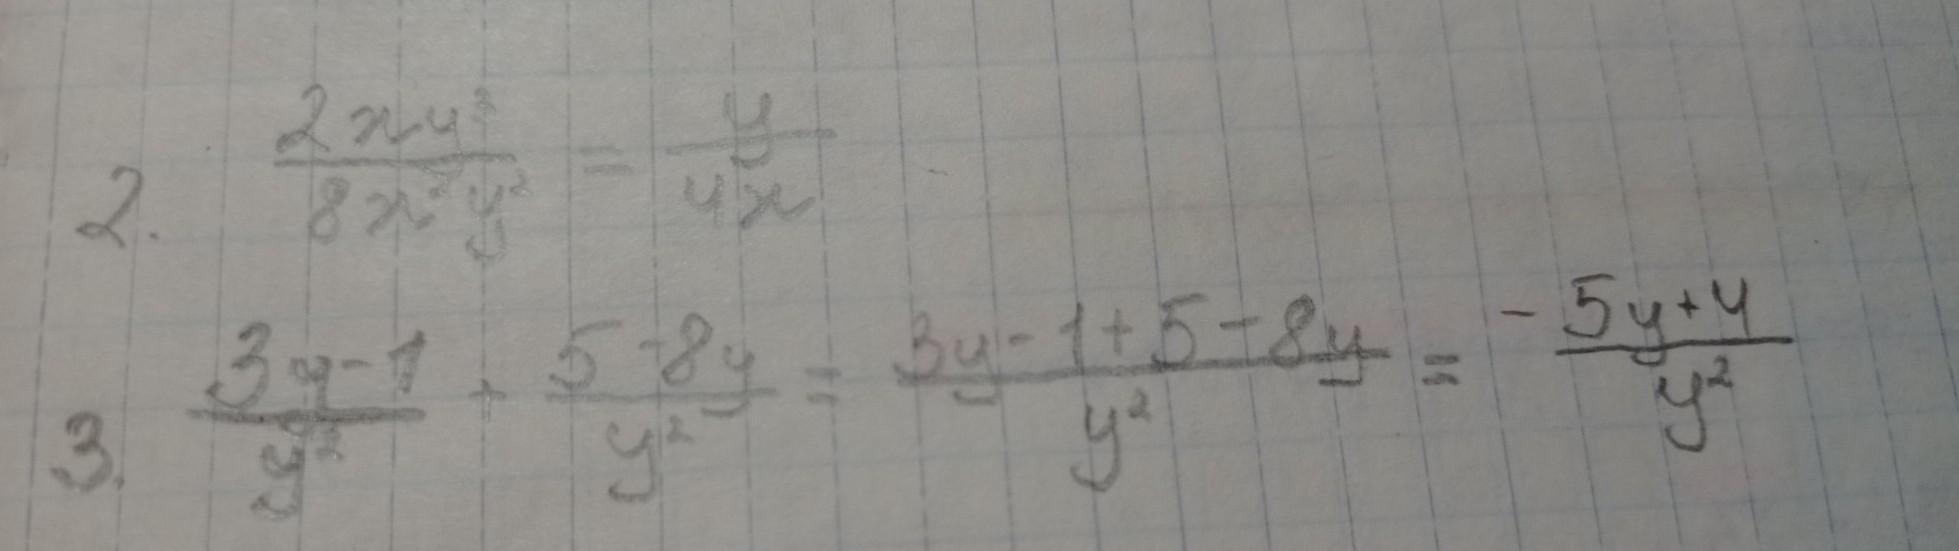 2. \frac{2xy^3}{8x^2y^2} = \frac{y}{4x}
3. \frac{3y-1}{y^2} + \frac{5-8y}{y^2} = \frac{3y-1+5-8y}{y^2} = -\frac{5y+4}{y^2}